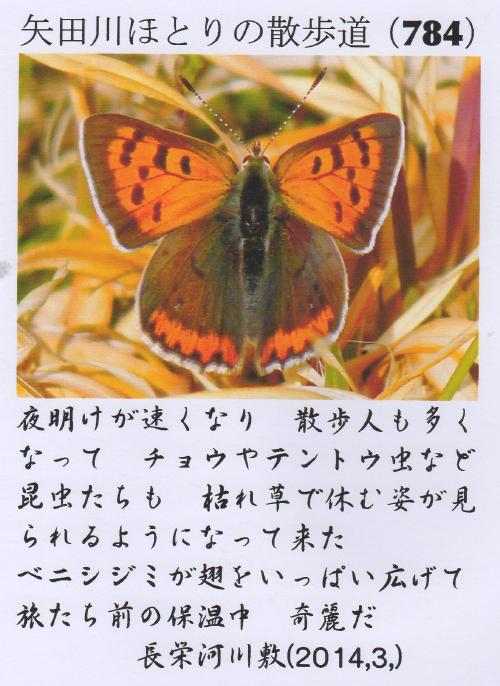 矢田川ほとりの散歩道（784）
夜明けが速くなり　散歩人も多く
なって　チョウやテントウ虫など
昆虫たちも　枯れ草で休む姿が見
られるようになって来た
ベニシジミが翅をいっぱい広げて
旅たち前の保温中　奇麗だ
長栄河川敷(2014,3,)